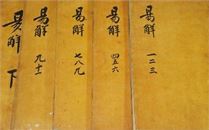 易解 一二三
易解 四五六
易解 七八九
易解 九十
易解 下